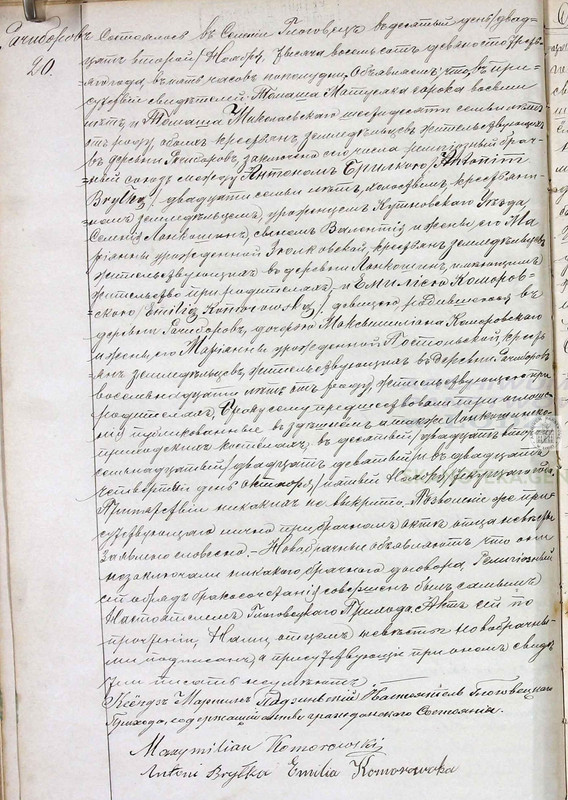 Рачиборовъ
20.
Состоялось въ Селении Гловецъ въ десятый день/двад-
цать второй/ Ноября, тысяча восемьсотъ девяносто
года, въ пять часовъ пополудни. Объявляемъ, что въ при-
сутствіи свидѣтелей Томаша Матусяка сорока восьми
лѣтъ, и Томаша Миколаевскаго шестидесяти семи лѣтъ
отъ роду, обоихъ крестьянъ земледѣльцевъ жительствующихъ
въ деревни Рачиборовъ, заключенъ сего числа религіозный брач-
ный союзъ между Антономъ Брылкою /Antonim
Bryłką/ двадцати семи лѣтъ, холостымъ, крестьяни-
номъ земледѣльцемъ, уроженцемъ Кутновскаго Уѣзда,
Селенія Лонкошинъ, сыномъ Валентія и жены его Ма-
ріанны урожденной крестьянъ земледѣльцевъ
жительствующихъ въ деревни Лонкошинъ, имѣющимъ
жительство при родителяхъ, и Емиліею Коморов-
скою /Emilią Komorowską/ девицею родившеюся въ
деревни Рачиборовъ, дочерью Максимиліана Коморовскаго
и жены его Маріанны урожденной крестьянъ
земледѣльцевъ, жительствующихъ въ деревни Рачиборовъ
восемнадцати лѣтъ отъ роду, жительствующею при
родителяхъ. Браку сему предшествовали три оглаше-
нія публикованные въ здѣшнемъ а также Лонкошинскомъ
приходскихъ костелахъ, въ десятый/двадцать второй
семнадцатый/двадцать девятый/ и въ двадцать
четвертый день Октября/пятый Ноября/ текущаго года
Препятствій никакихъ не выкрыто. Позволеніе же при-
сутствующаго лично при брачномъ актѣ отца невѣсты
заявлено словесно. Новобрачные объявляютъ что они
незаключали никакого брачнаго договора. Религіозный
сей обрядъ бракосочетанія совершенъ былъ самымъ
Настоятелемъ Гловецкаго Прихода. Актъ сей по
прочтеніи, Нами, отцемъ невѣсты новобрачны-
ми подписанъ, а присутствующіе при ономъ свидѣ-
тели писать неумѣютъ.
Ксендзъ Настоятель Гловецкаго
Прихода, содержащій акты гражданскаго Состоянія.
Maxymilian Komorowski
Antoni Bryłka Emilia Komorowska